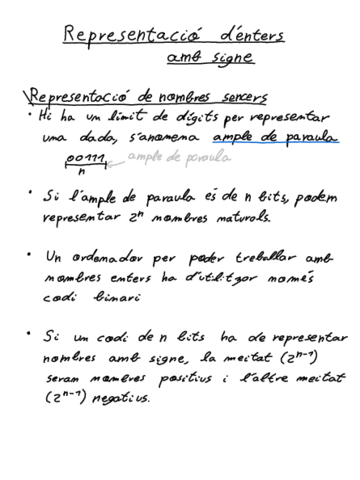 Representació d'énters
amb signe
Representació de nombres sencers
• Hi ha un límit de dígits per representar
una dada, s'anomena ample de paraula
00111 ample de paraula
n
• Si l'ample de paraula és de n bits, podem
representar 2ⁿ nombres naturals.
• Un ordenador per poder treballar amb
nombres enters ha d'utilitzar només
codi binari
• Si un codi de n bits ha de representar
nombres amb signe, la meitat (2ⁿ⁻¹)
seran nombres positius i l'altre meitat
(2ⁿ⁻¹) negatius.